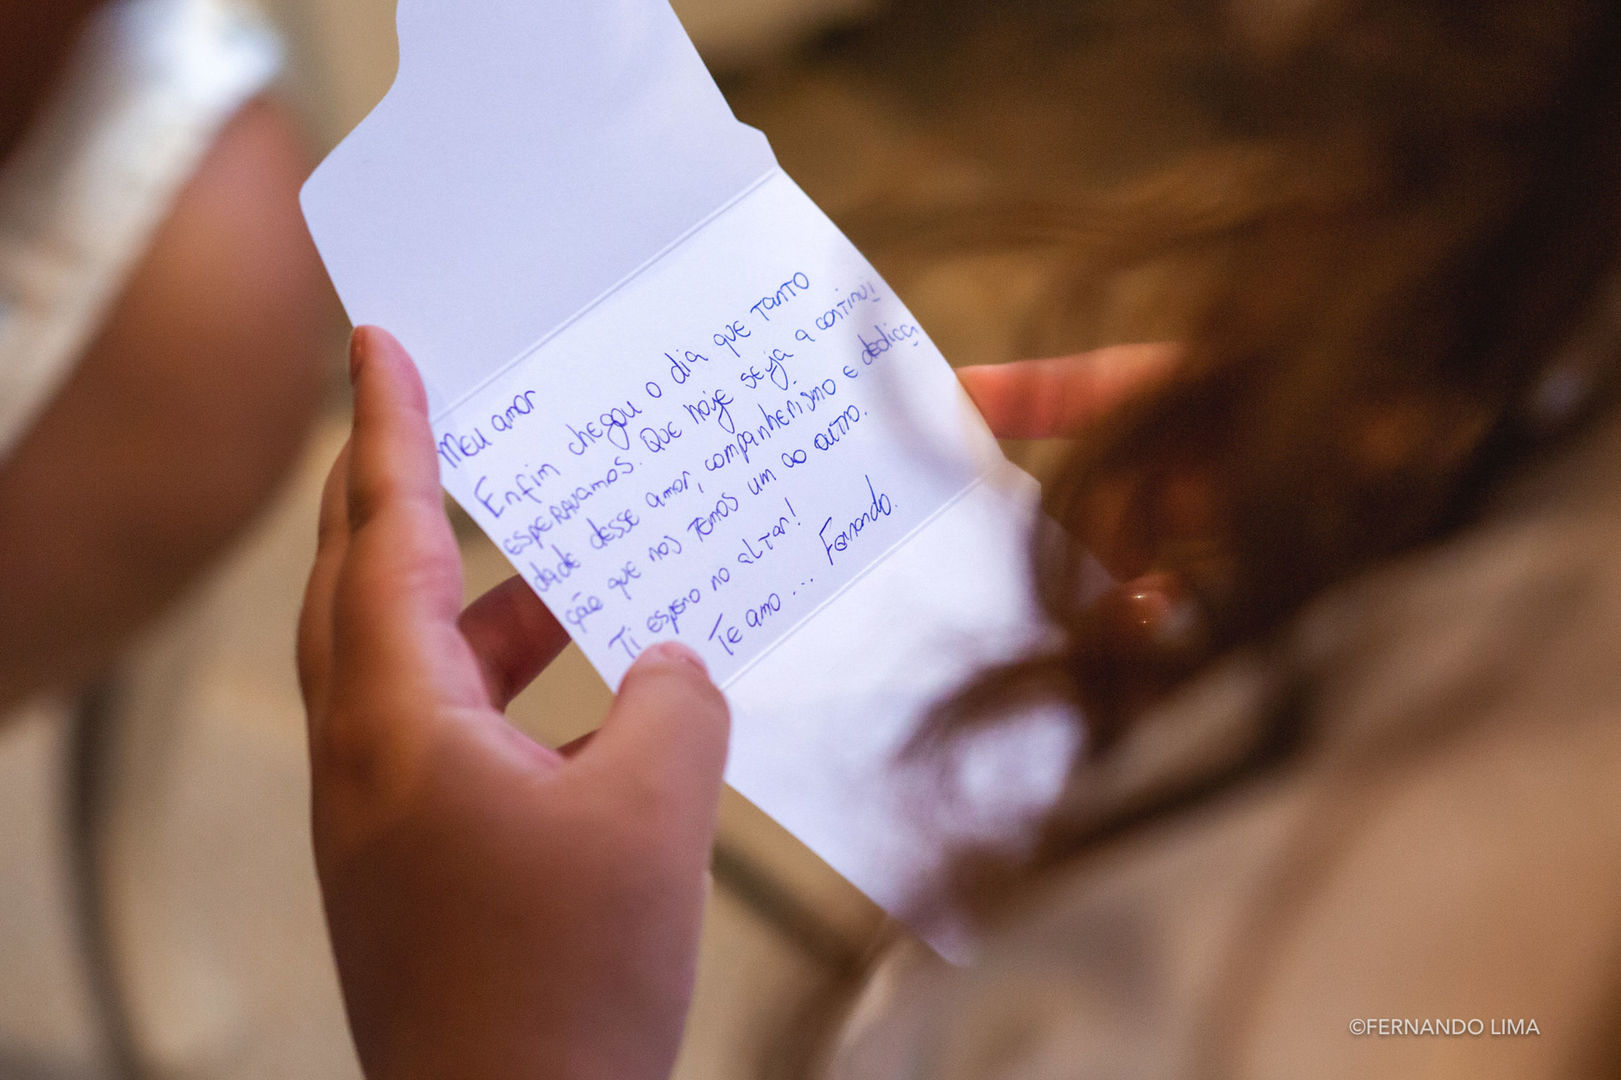 Meu amor
Enfim chegou o dia que tanto
esperavamos. Que hoje seja a continui
dade desse amor, companherismo e dedica
ção que nos temos um ao outro.
Ti espero no altar!
Te amo... Fernando.
©FERNANDO LIMA